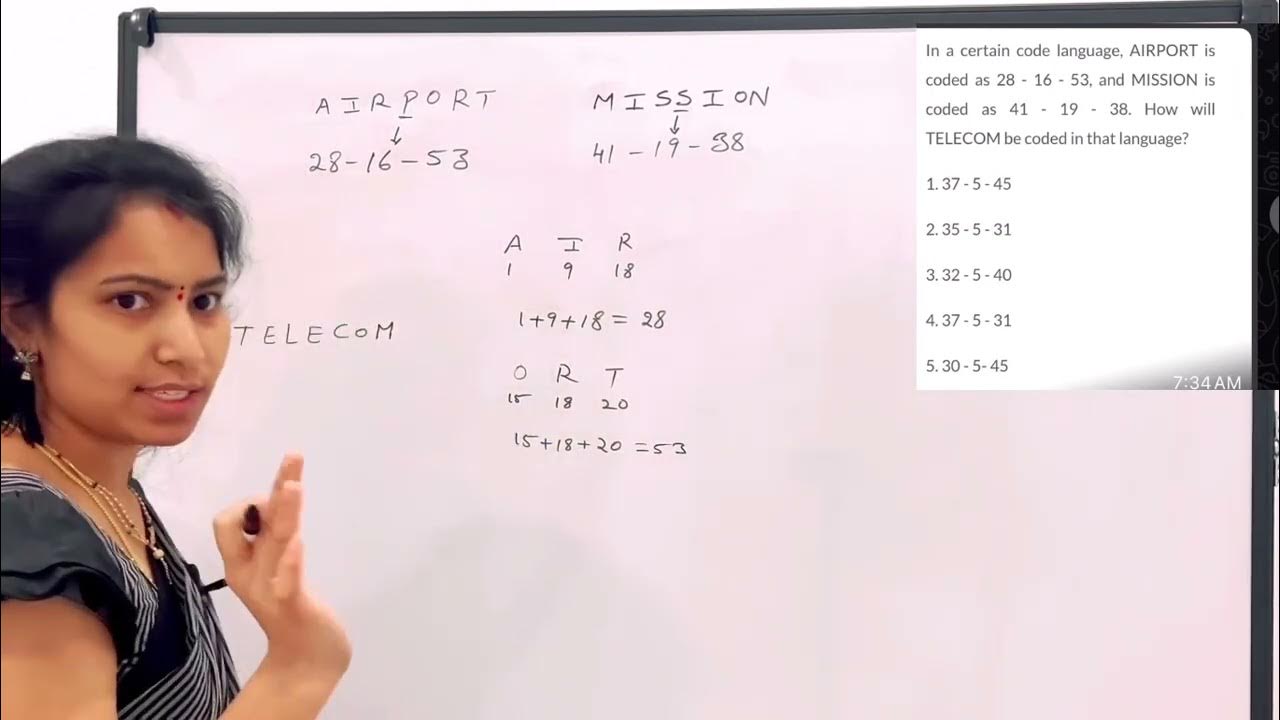 AIRPORT
28-16-53
MISSION
41-19-38
A I R
1 9 18
1+9+18=28
TELECOM
O R T
15 18 20
15+18+20=53
In a certain code language, AIRPORT is
coded as 28 - 16 - 53, and MISSION is
coded as 41 - 19 - 38. How will
TELECOM be coded in that language?
1. 37 - 5 - 45
2. 35 - 5 - 31
3. 32 - 5 - 40
4. 37 - 5 - 31
5. 30 - 5- 45
7:34 AM